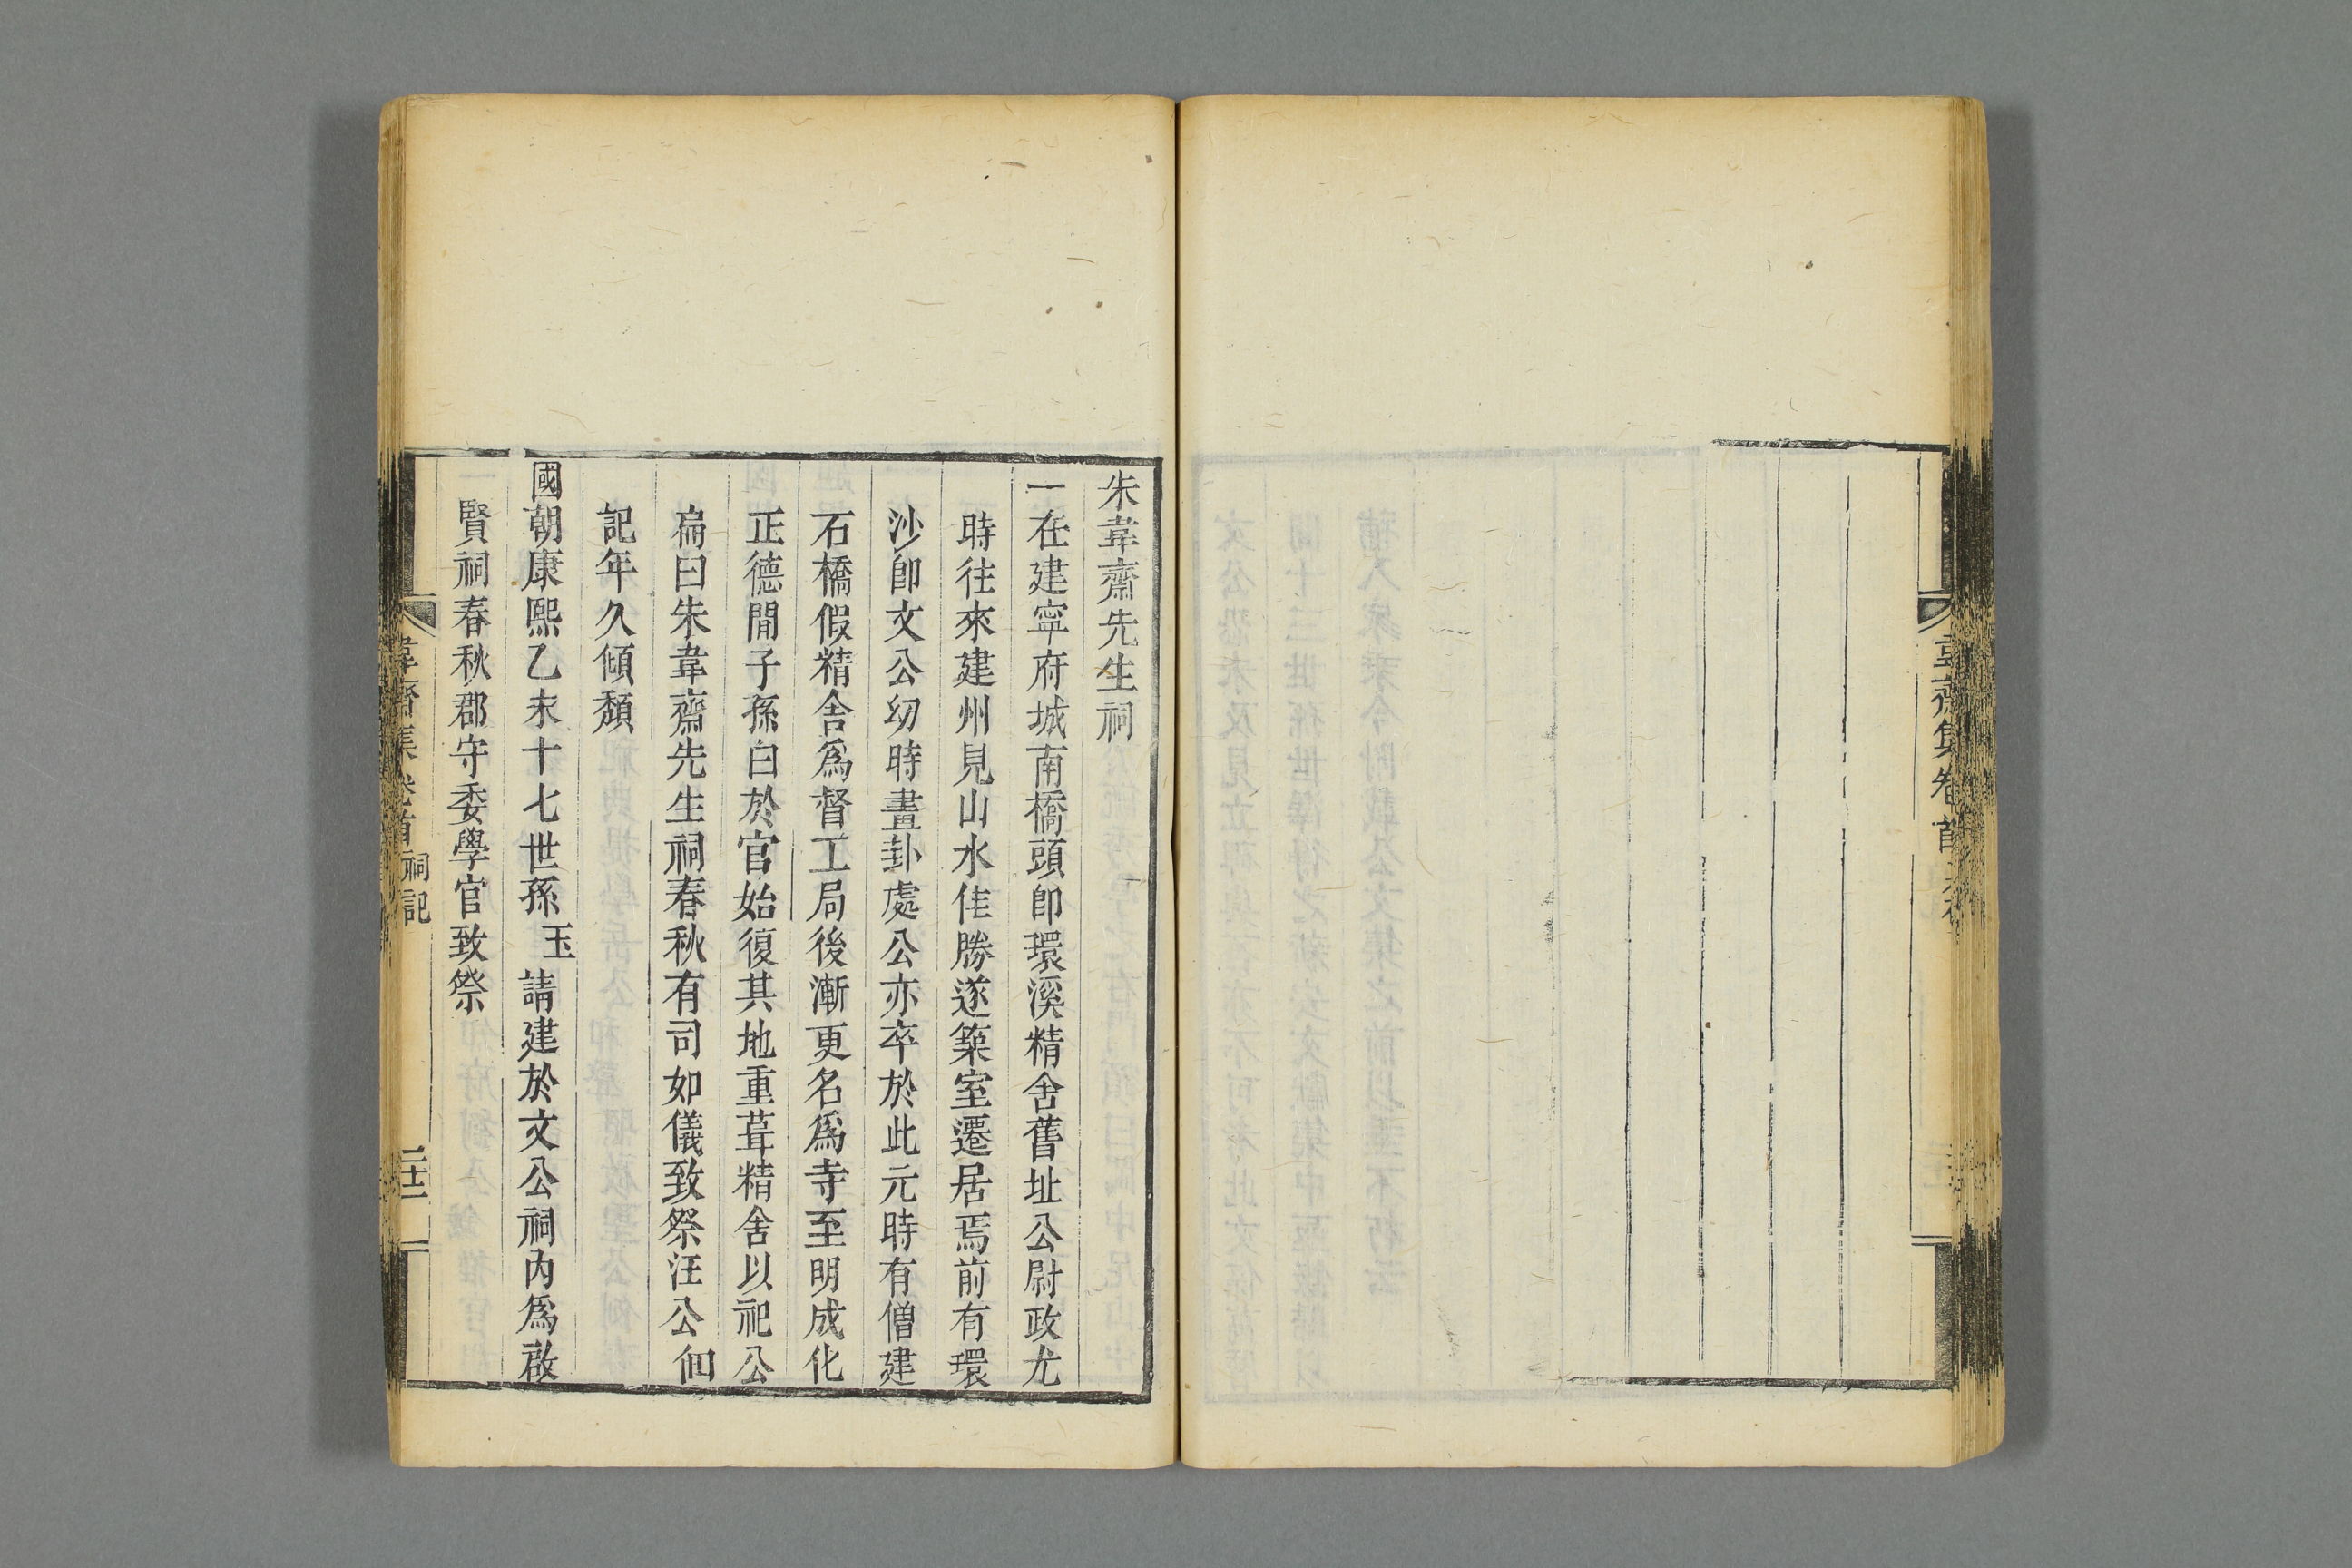 韋齋集卷首
朱韋齋先生祠
一在建寧府城南橋頭卽環溪精舍舊址公尉政尤
時往來建州見山水佳勝遂築室遷居焉前有環
沙卽文公幼時畫卦處公亦卒於此元時有僧建
石橋假精舍爲督工局後漸更名爲寺至明成化
正德間子孫白於官始復其地重葺精舍以祀公
扁曰朱韋齋先生祠春秋有司如儀致祭汪公佃
記年久傾頽
國朝康熙乙未十七世孫玉請建於文公祠內爲啟
賢祠春秋郡守委學官致祭
韋齋集卷首 祠記